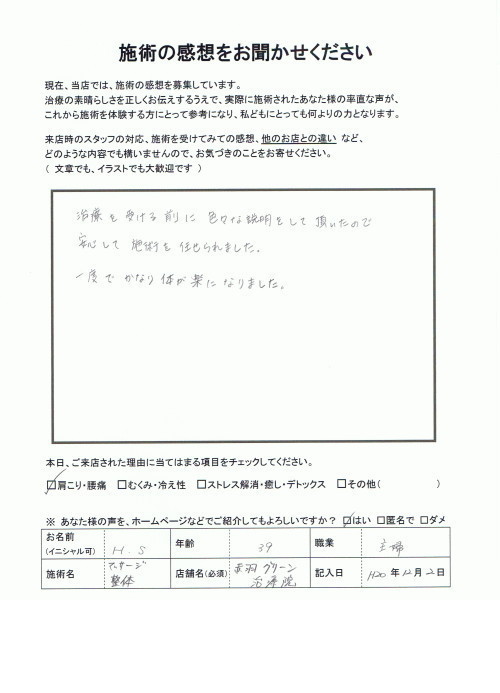 施術の感想をお聞かせください
現在、当店では、施術の感想を募集しています。
治療の素晴らしさを正しくお伝えするうえで、実際に施術されたあなた様の率直な声が、
これから施術を体験する方にとって参考になり、私どもにとっても何よりの力となります。
来店時のスタッフの対応、施術を受けてみての感想、他のお店との違い など、
どのような内容でも構いませんので、お気づきのことをお寄せください。
( 文章でも、イラストでも大歓迎です )
治療を受ける前に色々な説明をして頂いたので
安心して施術を任せられました。
一度でかなり体が楽になりました。
本日、ご来店された理由に当てはまる項目をチェックしてください。
☑肩こり・腰痛 □むくみ・冷え性 □ストレス解消・癒し・デトックス □その他( )
※ あなた様の声を、ホームページなどでご紹介してもよろしいですか? ☑はい □匿名で □ダメ
お名前 (イニシャル可) H.S 年齢 39 職業 主婦
施術名 マッサージ 整体 店舗名(必須) 赤羽グリーン 治療院 記入日 H20年12月2日